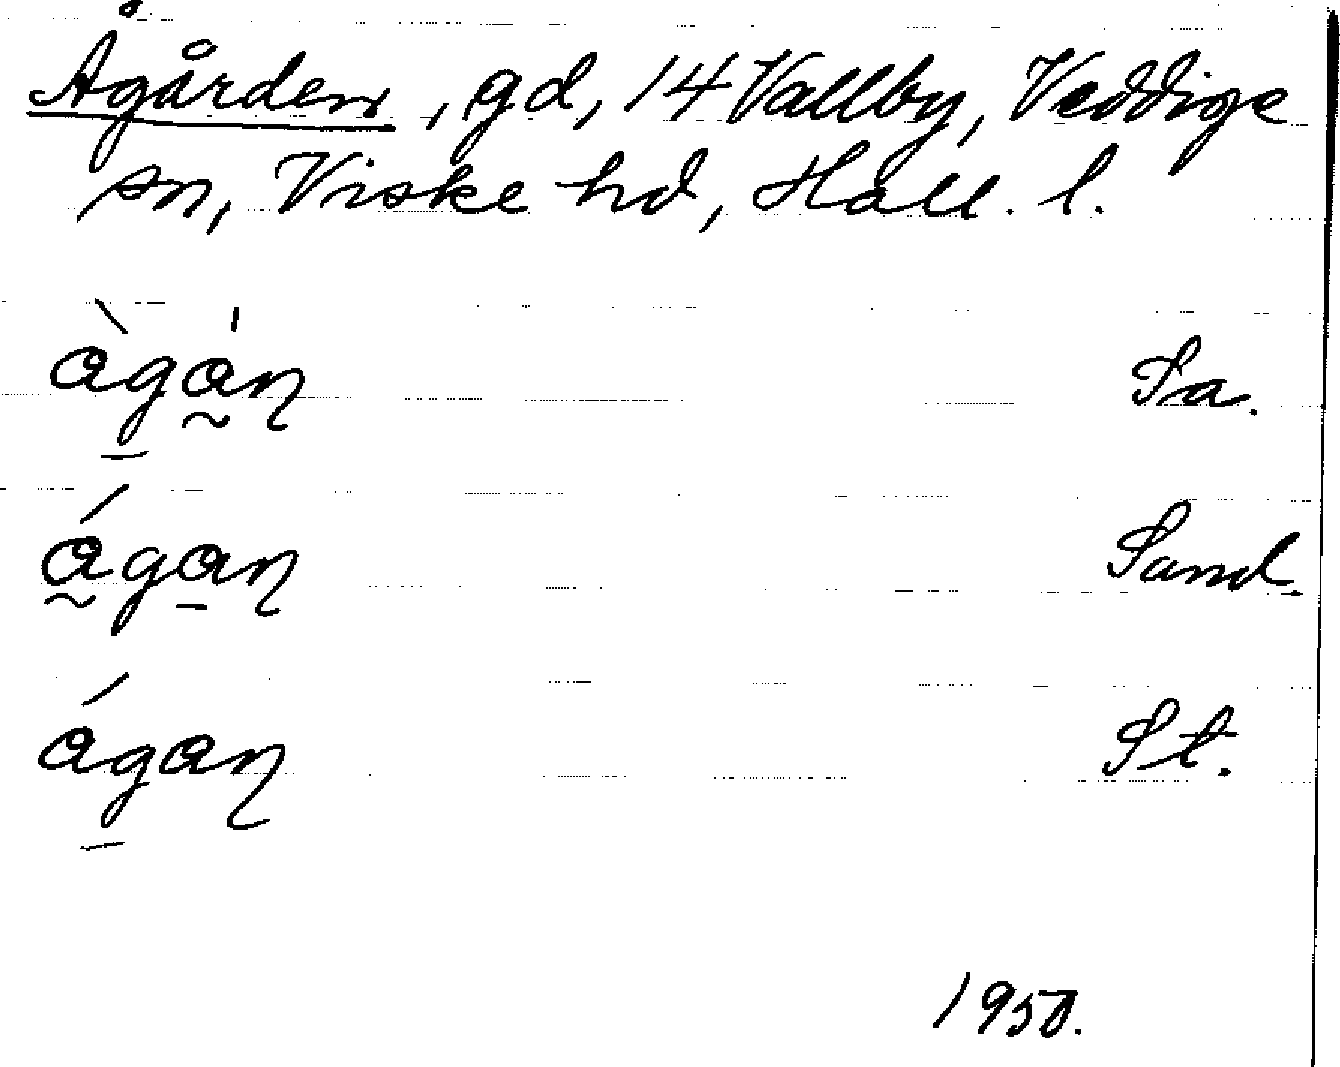 Ågården, gd, 14 Vallby, Veddige
sn, Viske hd, Hall. l.
àgán Sa.
ágan Sand.
ágan St.
1950.